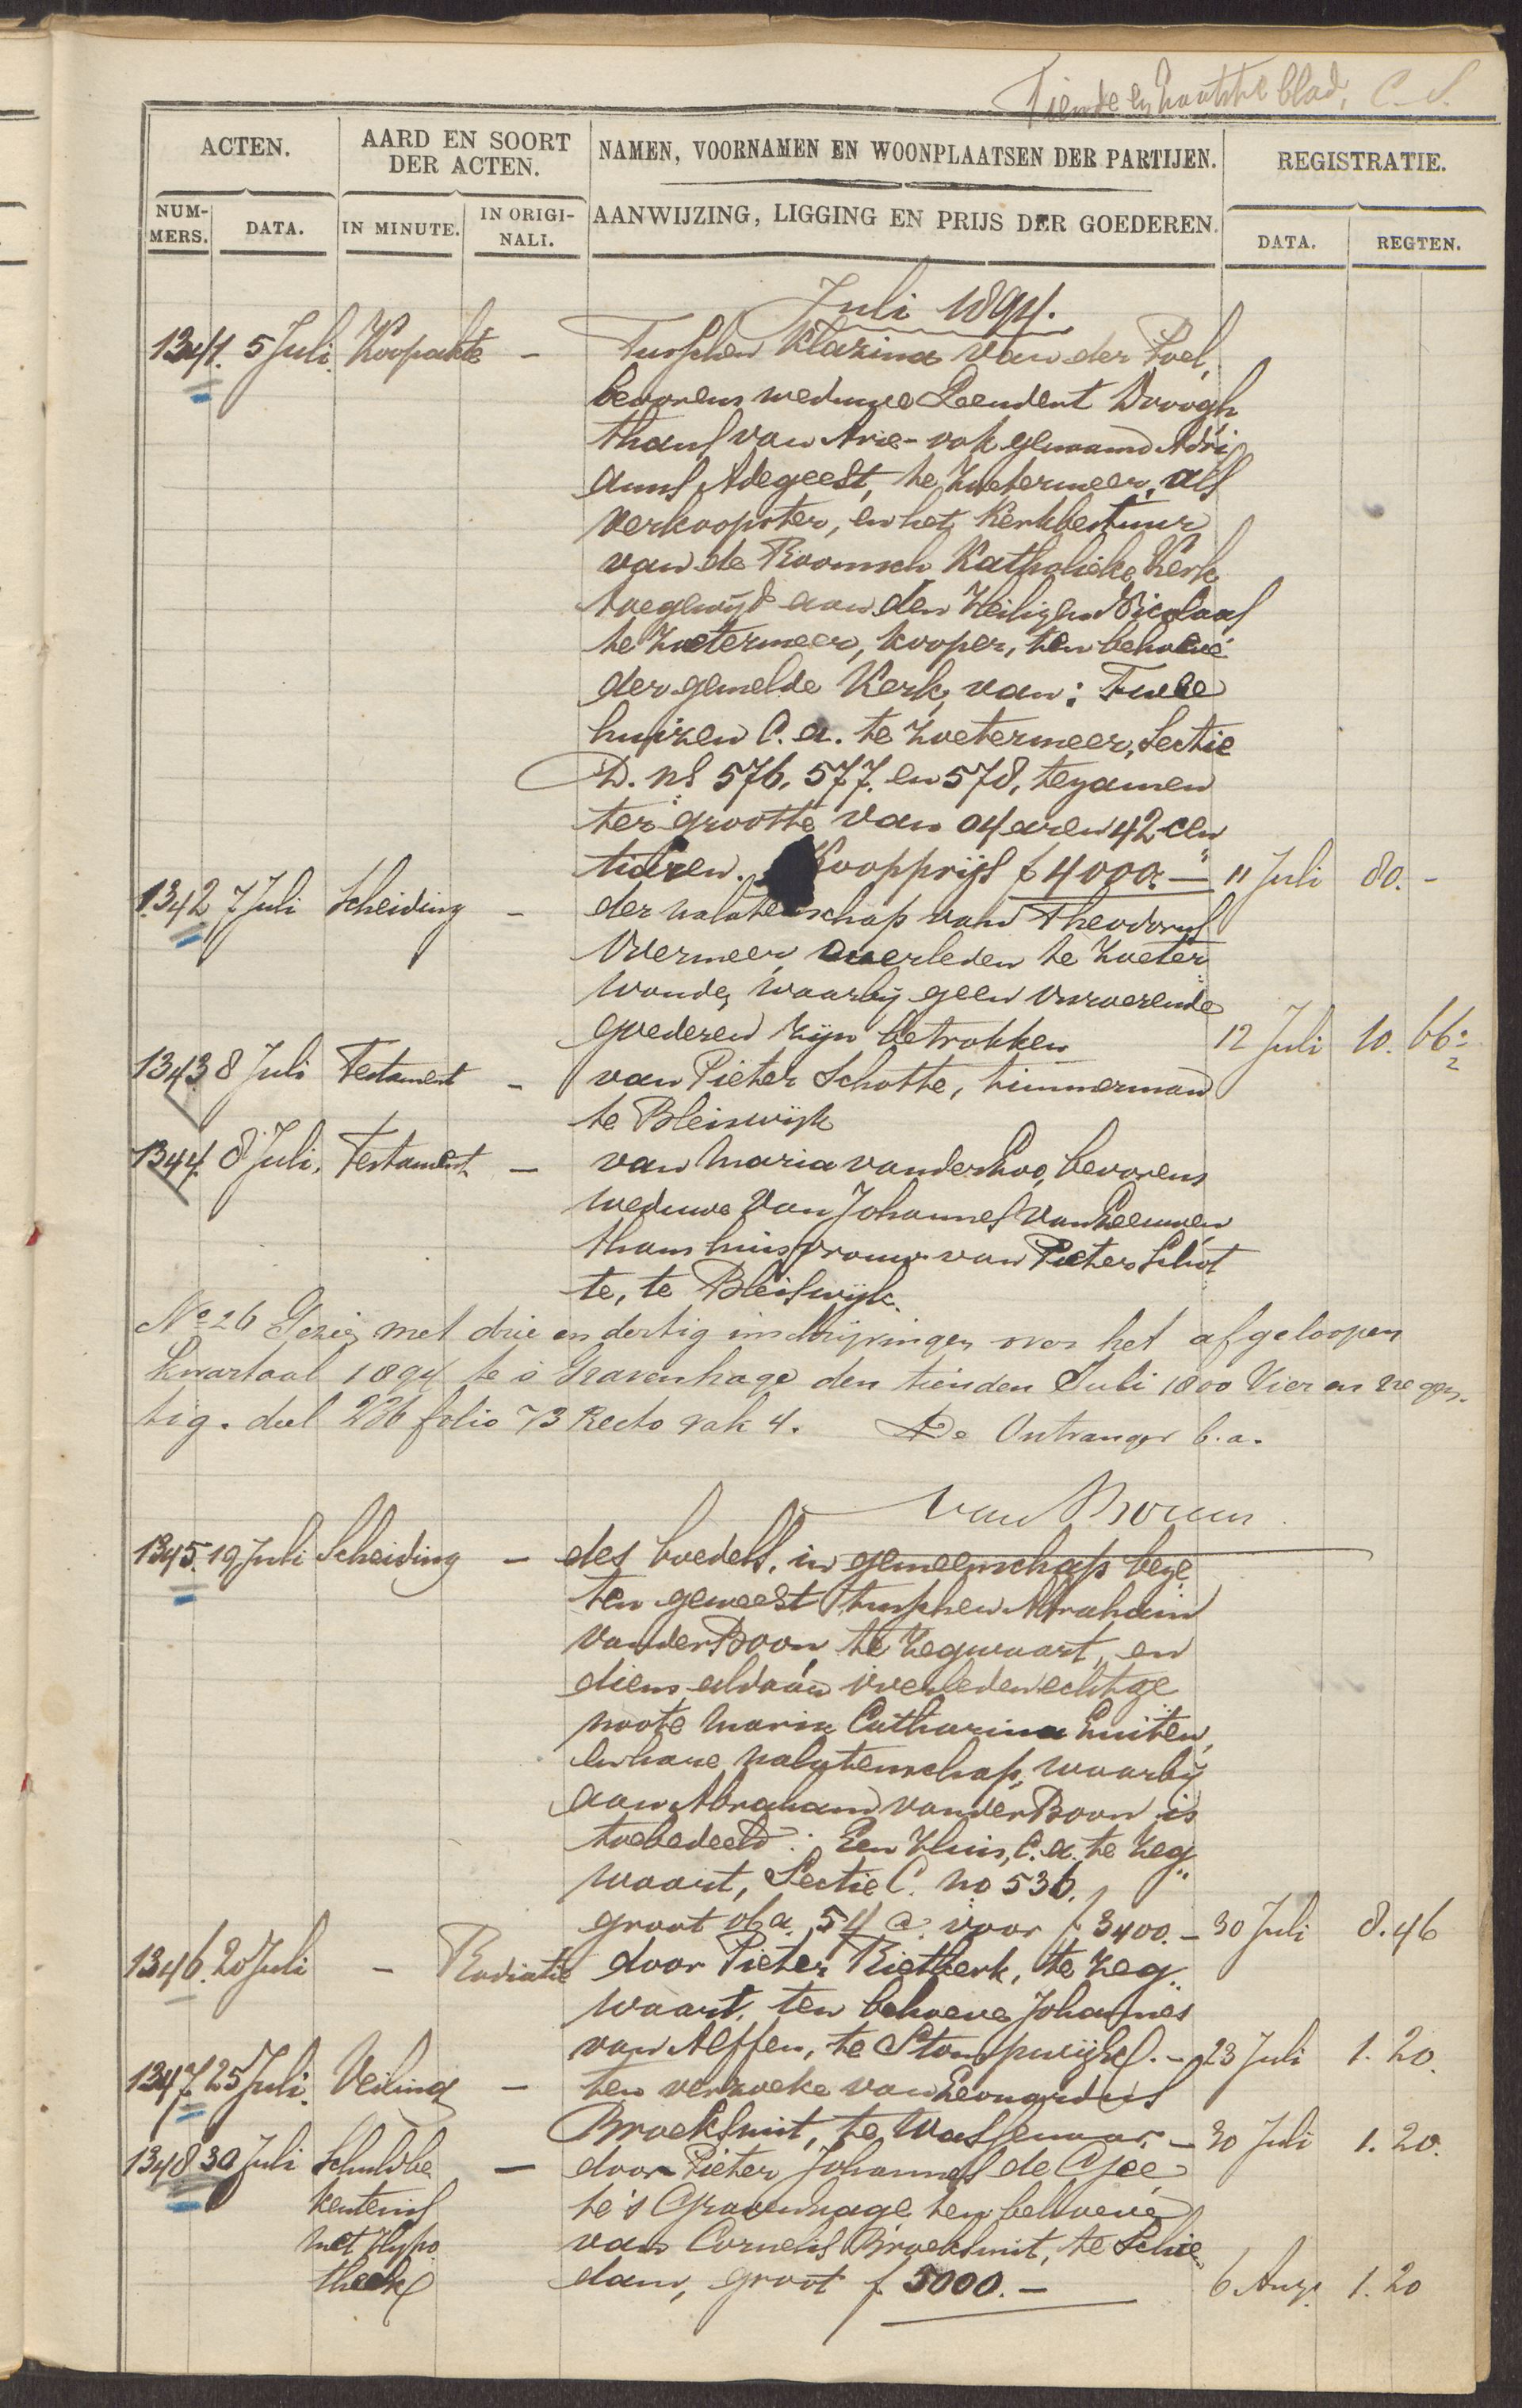 Tiende en laatste blad, C. S.
ACTEN. AARD EN SOORT DER ACTEN. NAMEN, VOORNAMEN EN WOONPLAATSEN DER PARTIJEN. REGISTRATIE.
NUM-MERS. DATA. IN MINUTE. IN ORIGI-NALI. AANWIJZING, LIGGING EN PRIJS DER GOEDEREN. DATA. REGTEN.
Juli 1894.
1341. 5 Juli. Koopakte – Tusschen Klazina van der Poel,
bevorens weduwe Leendert Droogh
thans van Arie - ook genaamd Adri
anus Adegeest, te Zoetermeer, als
verkoopster, en het Kerkbestuur
van de Roomsch Katholieke Kerk
toegewijd aan den Heiligen Nicolaas
te Zoetermeer, kooper, ten behoeve
der gemelde Kerk, van: Twee
huizen C. a. te Zoetermeer, Sectie
D. ns 576, 577. en 578, tezamen
ter grootte van 04 aren 42 cen
tiaren. Koopprijs f 4000.– 11 Juli 80.–
1342 7 Juli Scheiding – der nalatenschap van Theodorus
Overmeer, overleden te Zoeter
woude, waarbij geen onroerende
goederen zijn betrokken 12 Juli 10. 66
1343 8 Juli Testament – van Pieter Schotte, timmerman
te Bleiswijk
1344. 8 Juli. Testament – van Maria van der Loo, bevorens
weduwe van Johannes van Leeuwen
thans huisvrouw van Pieter Schot
te, te Bleiswijk.
No 26 Gezien met drie en dertig inschrijvingen over het afgeloopen
kwartaal 1894 te s Gravenhage den tienden Juli 1800 Vier en negen-
tig. deel 236 folio 73 Recto vak 4. De Ontvanger b.a.
1345. 19 Juli Scheiding – des boedels, in gemeenschap beze
ten geweest tusschen Abraham
van der Boon te Zegwaart, en
diens aldaar overleden echtge
noote Maria Catharina Luiten,
en hare nalatenschap, waarbij
aan Abraham van der Boon is
toebedeeld: Een Huis, C. a. te Zeg
waart, Sectie C. no 536.
groot 01 a. 54 c. voor f 3400.– 30 Juli 8.46
1346. 20 Juli – Radiatie door Pieter Rietkerk, te Zeg
waart, ten behoeve Johannes
van Alffen, te Stompwijk. – 23 Juli 1.20.
1347. 25 Juli. Veiling – ten verzoeke van Leonardus
Broeksmit, te Wassenaar. – 30 Juli 1.20.
1348 30 Juli Schuldbe – door Pieter Johannes de Gee
kentenis te 's Gravenhage ten behoeve
met Hypo van Cornelis Broeksmit, te Schie
theek dam, groot f 5000.– 6 Aug. 1.20